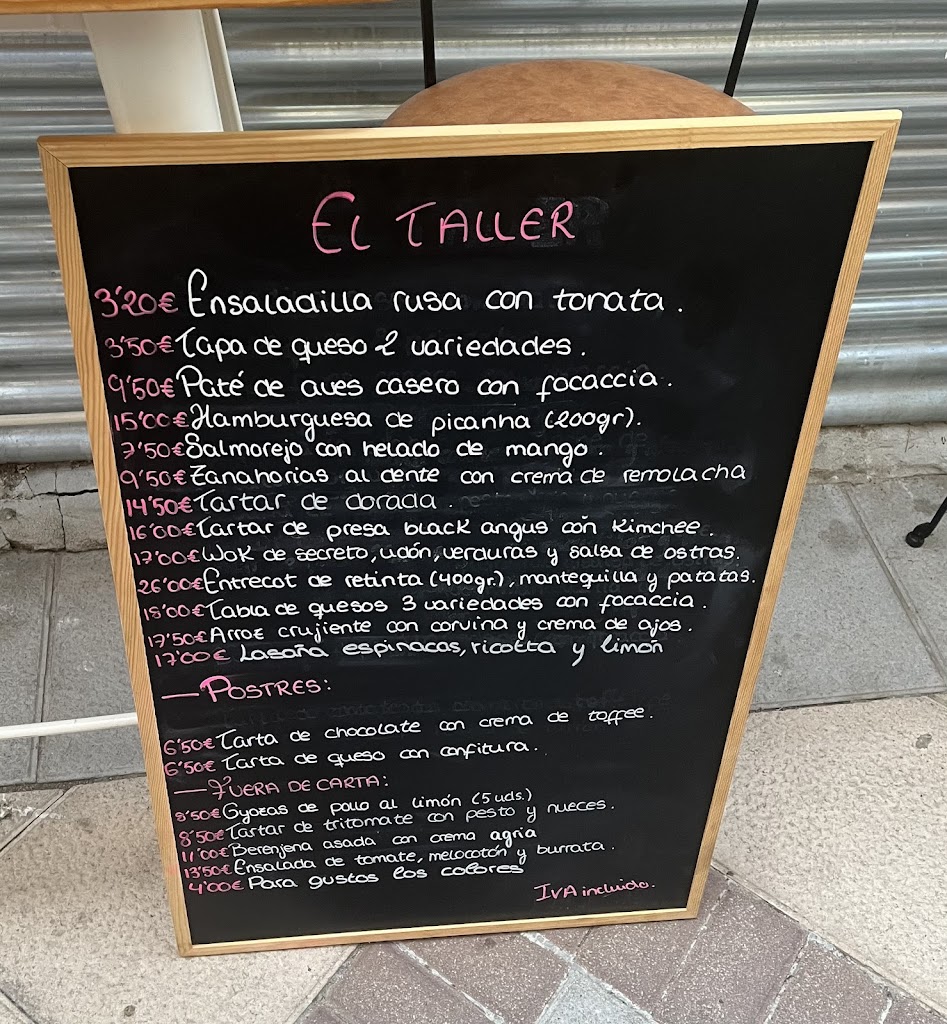 EL TALLER
3'20€ Ensaladilla rusa con tonata.
3'50€ Tapa de queso 2 variedades.
9'50€ Paté de aves casero con focaccia.
15'00€ Hamburguesa de picanha (200gr).
7'50€ Salmorejo con helado de mango.
9'50€ Zanahorias al dente con crema de remolacha
14'50€ Tartar de dorada.
16'00€ Tartar de presa black angus con kimchee.
17'00€ Wok de secreto, udón, verduras y salsa de ostras.
26'00€ Entrecot de retinta (400gr.), mantequilla y patatas.
18'00€ Tabla de quesos 3 variedades con focaccia.
17'50€ Arroz crujiente con corvina y crema de ajos.
17'00€ Lasaña espinacas, ricotta y limón
— POSTRES:
6'50€ Tarta de chocolate con crema de toffee.
6'50€ Tarta de queso con confitura.
— FUERA DE CARTA:
8'50€ Gyozas de pollo al limón (5 uds.)
8'50€ Tartar de tritomate con pesto y nueces.
11'00€ Berenjena asada con crema agria
13'50€ Ensalada de tomate, melocotón y burrata.
4'00€ Para gustos los colores
IVA incluido.